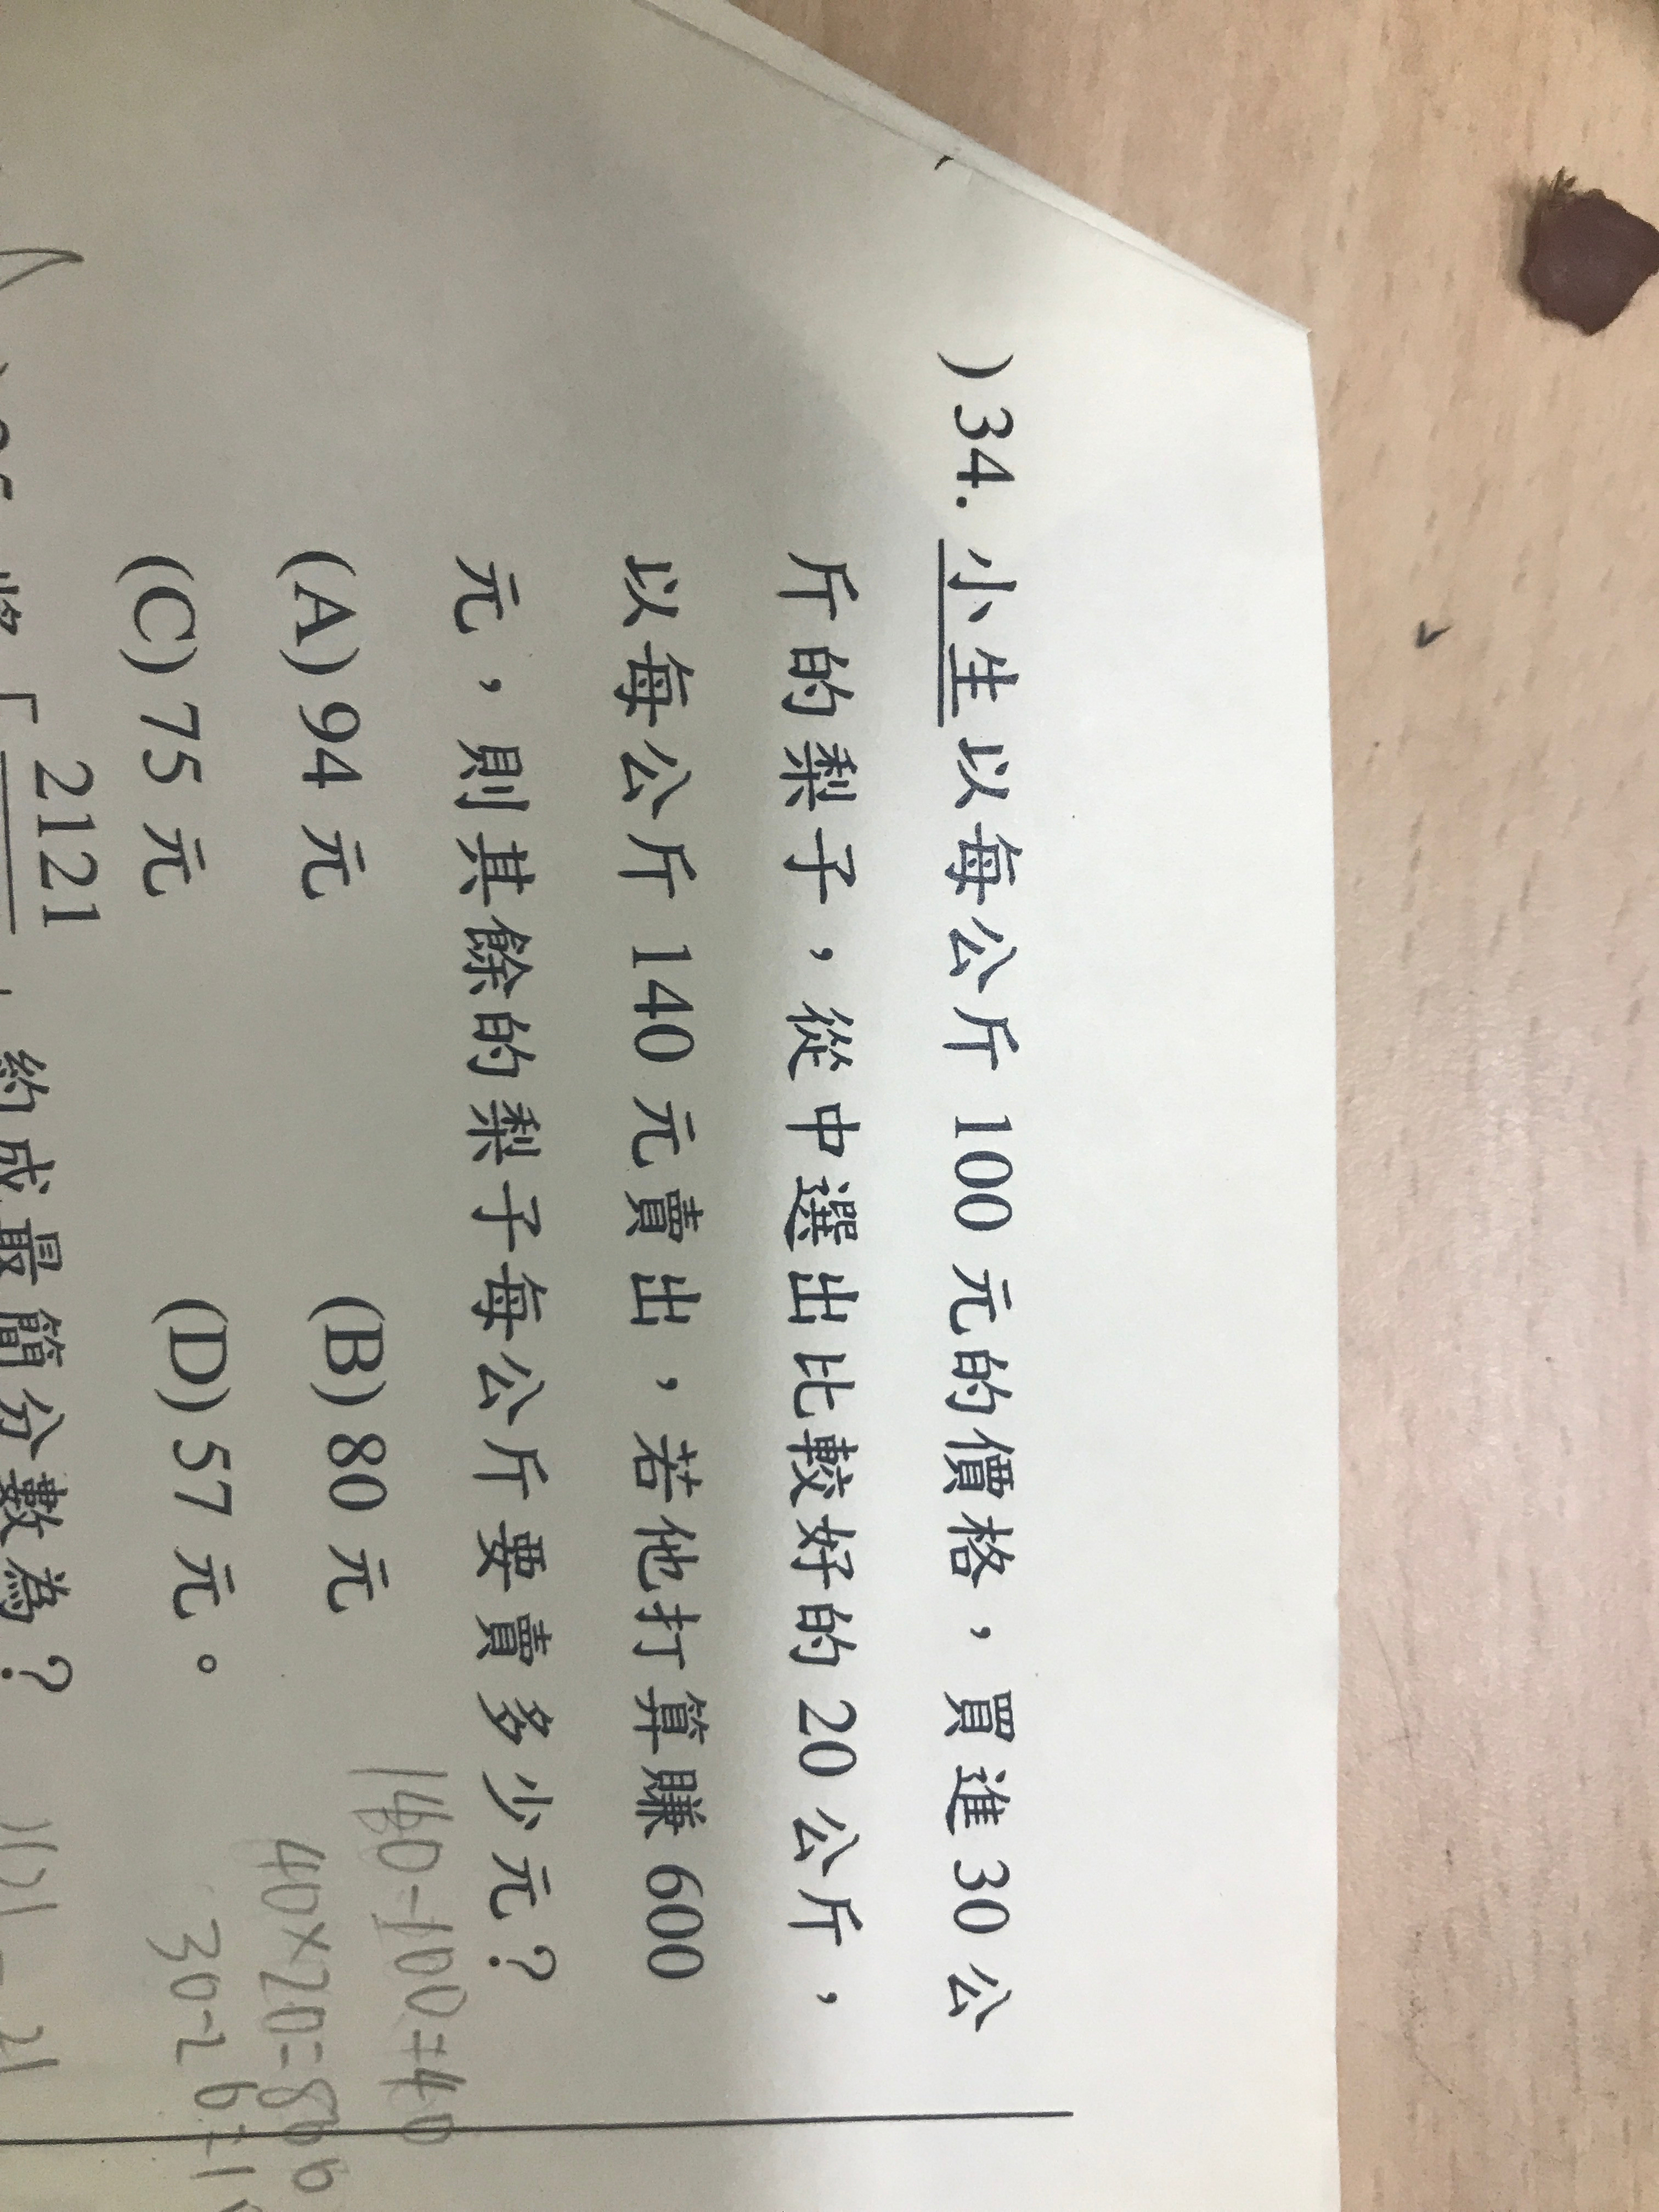 )34. 小生以每公斤 100 元的價格，買進 30 公
斤的梨子，從中選出比較好的 20 公斤，
以每公斤 140 元賣出，若他打算賺 600
元，則其餘的梨子每公斤要賣多少元？
(A) 94 元 (B) 80 元
(C) 75 元 (D) 57 元。
140-100=40
40×20=800
30-20=1
2121
約成最簡分數為？